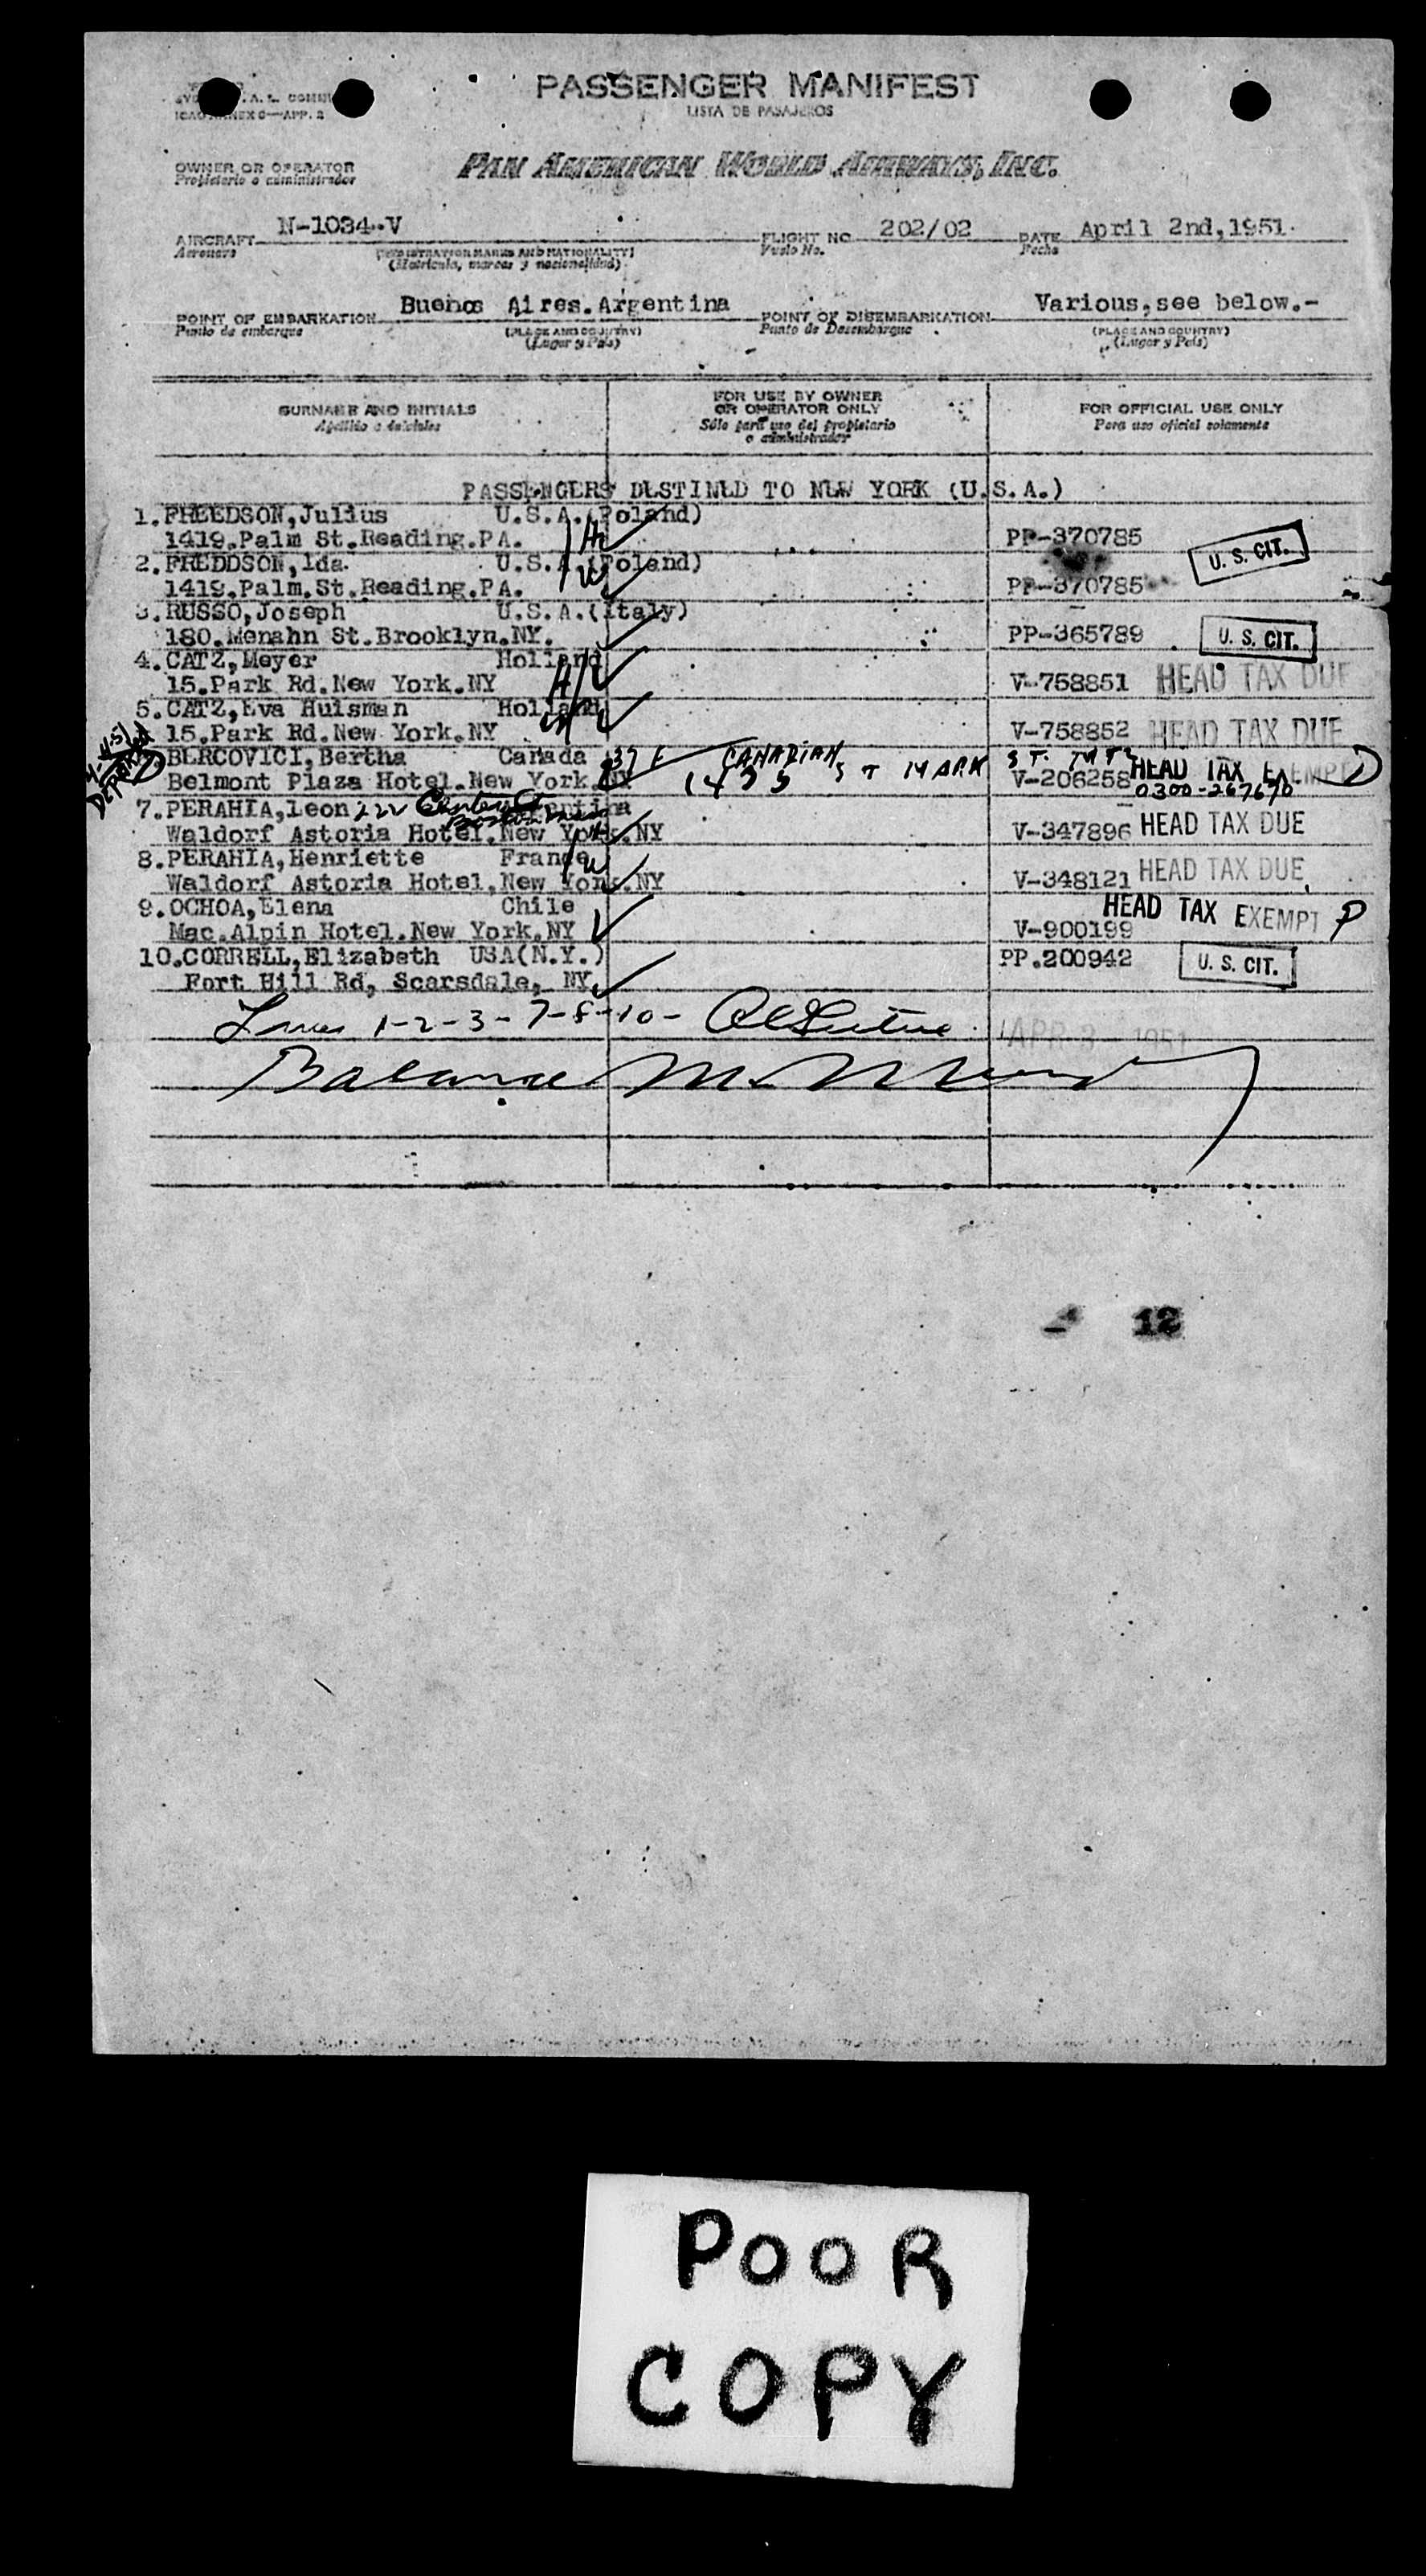 PASSENGER MANIFEST
LISTA DE PASAJEROS
ICAO ANNEX 9—APP. 2
OWNER OR OPERATOR
Propietario o administrador
PAN AMERICAN WORLD AIRWAYS, INC.
AIRCRAFT N-1034-V FLIGHT NO 202/02 DATE April 2nd,1951.
Aeronave (REGISTRATION MARKS AND NATIONALITY) Vuelo No. Fecha
(Matricula, marcas y nacionalidad)
POINT OF EMBARKATION Buenos Aires.Argentina POINT OF DISEMBARKATION Various,see below.-
Punto de embarque (PLACE AND COUNTRY) Punto de Desembarque (PLACE AND COUNTRY)
(Lugar y País) (Lugar y País)
SURNAME AND INITIALS FOR USE BY OWNER OR OPERATOR ONLY FOR OFFICIAL USE ONLY
Apellido e iniciales Sólo para uso del propietario o administrador Para uso oficial solamente
PASSENGERS DESTINED TO NEW YORK (U.S.A.)
1.FREEDSON,Julius U.S.A.(Poland)
1419.Palm St.Reading.PA. H PP-370785 U. S. CIT.
2.FREDDSON,Ida. U.S.A.(Poland)
1419.Palm.St.Reading.PA. W PP-370785
3.RUSSO,Joseph U.S.A.(Italy)
180.Menahn St.Brooklyn.NY. PP-365789 U. S. CIT.
4.CATZ,Meyer Holland
15.Park Rd.New York.NY H V-758851 HEAD TAX DUE
5.CATZ,Eva Hulsman Holland
15.Park Rd.New York.NY W V-758852 HEAD TAX DUE
BERCOVICI,Bertha Canada 37 F CANADIAN
Belmont Plaza Hotel.New York.NY V-206258 HEAD TAX EXEMPT
0300-267670
7.PERAHIA,Leon Argentina
Waldorf Astoria Hotel.New York.NY H V-347896 HEAD TAX DUE
8.PERAHIA,Henriette France
Waldorf Astoria Hotel,New York.NY W V-348121 HEAD TAX DUE
9.OCHOA,Elena Chile
Mac.Alpin Hotel.New York.NY V-900199 HEAD TAX EXEMPT P
10.CORRELL,Elizabeth USA(N.Y.) PP.200942 U. S. CIT.
Fort Hill Rd, Scarsdale, NY.
Lines 1-2-3-7-8-10-
APR 3 1951
Balance
12
POOR
COPY